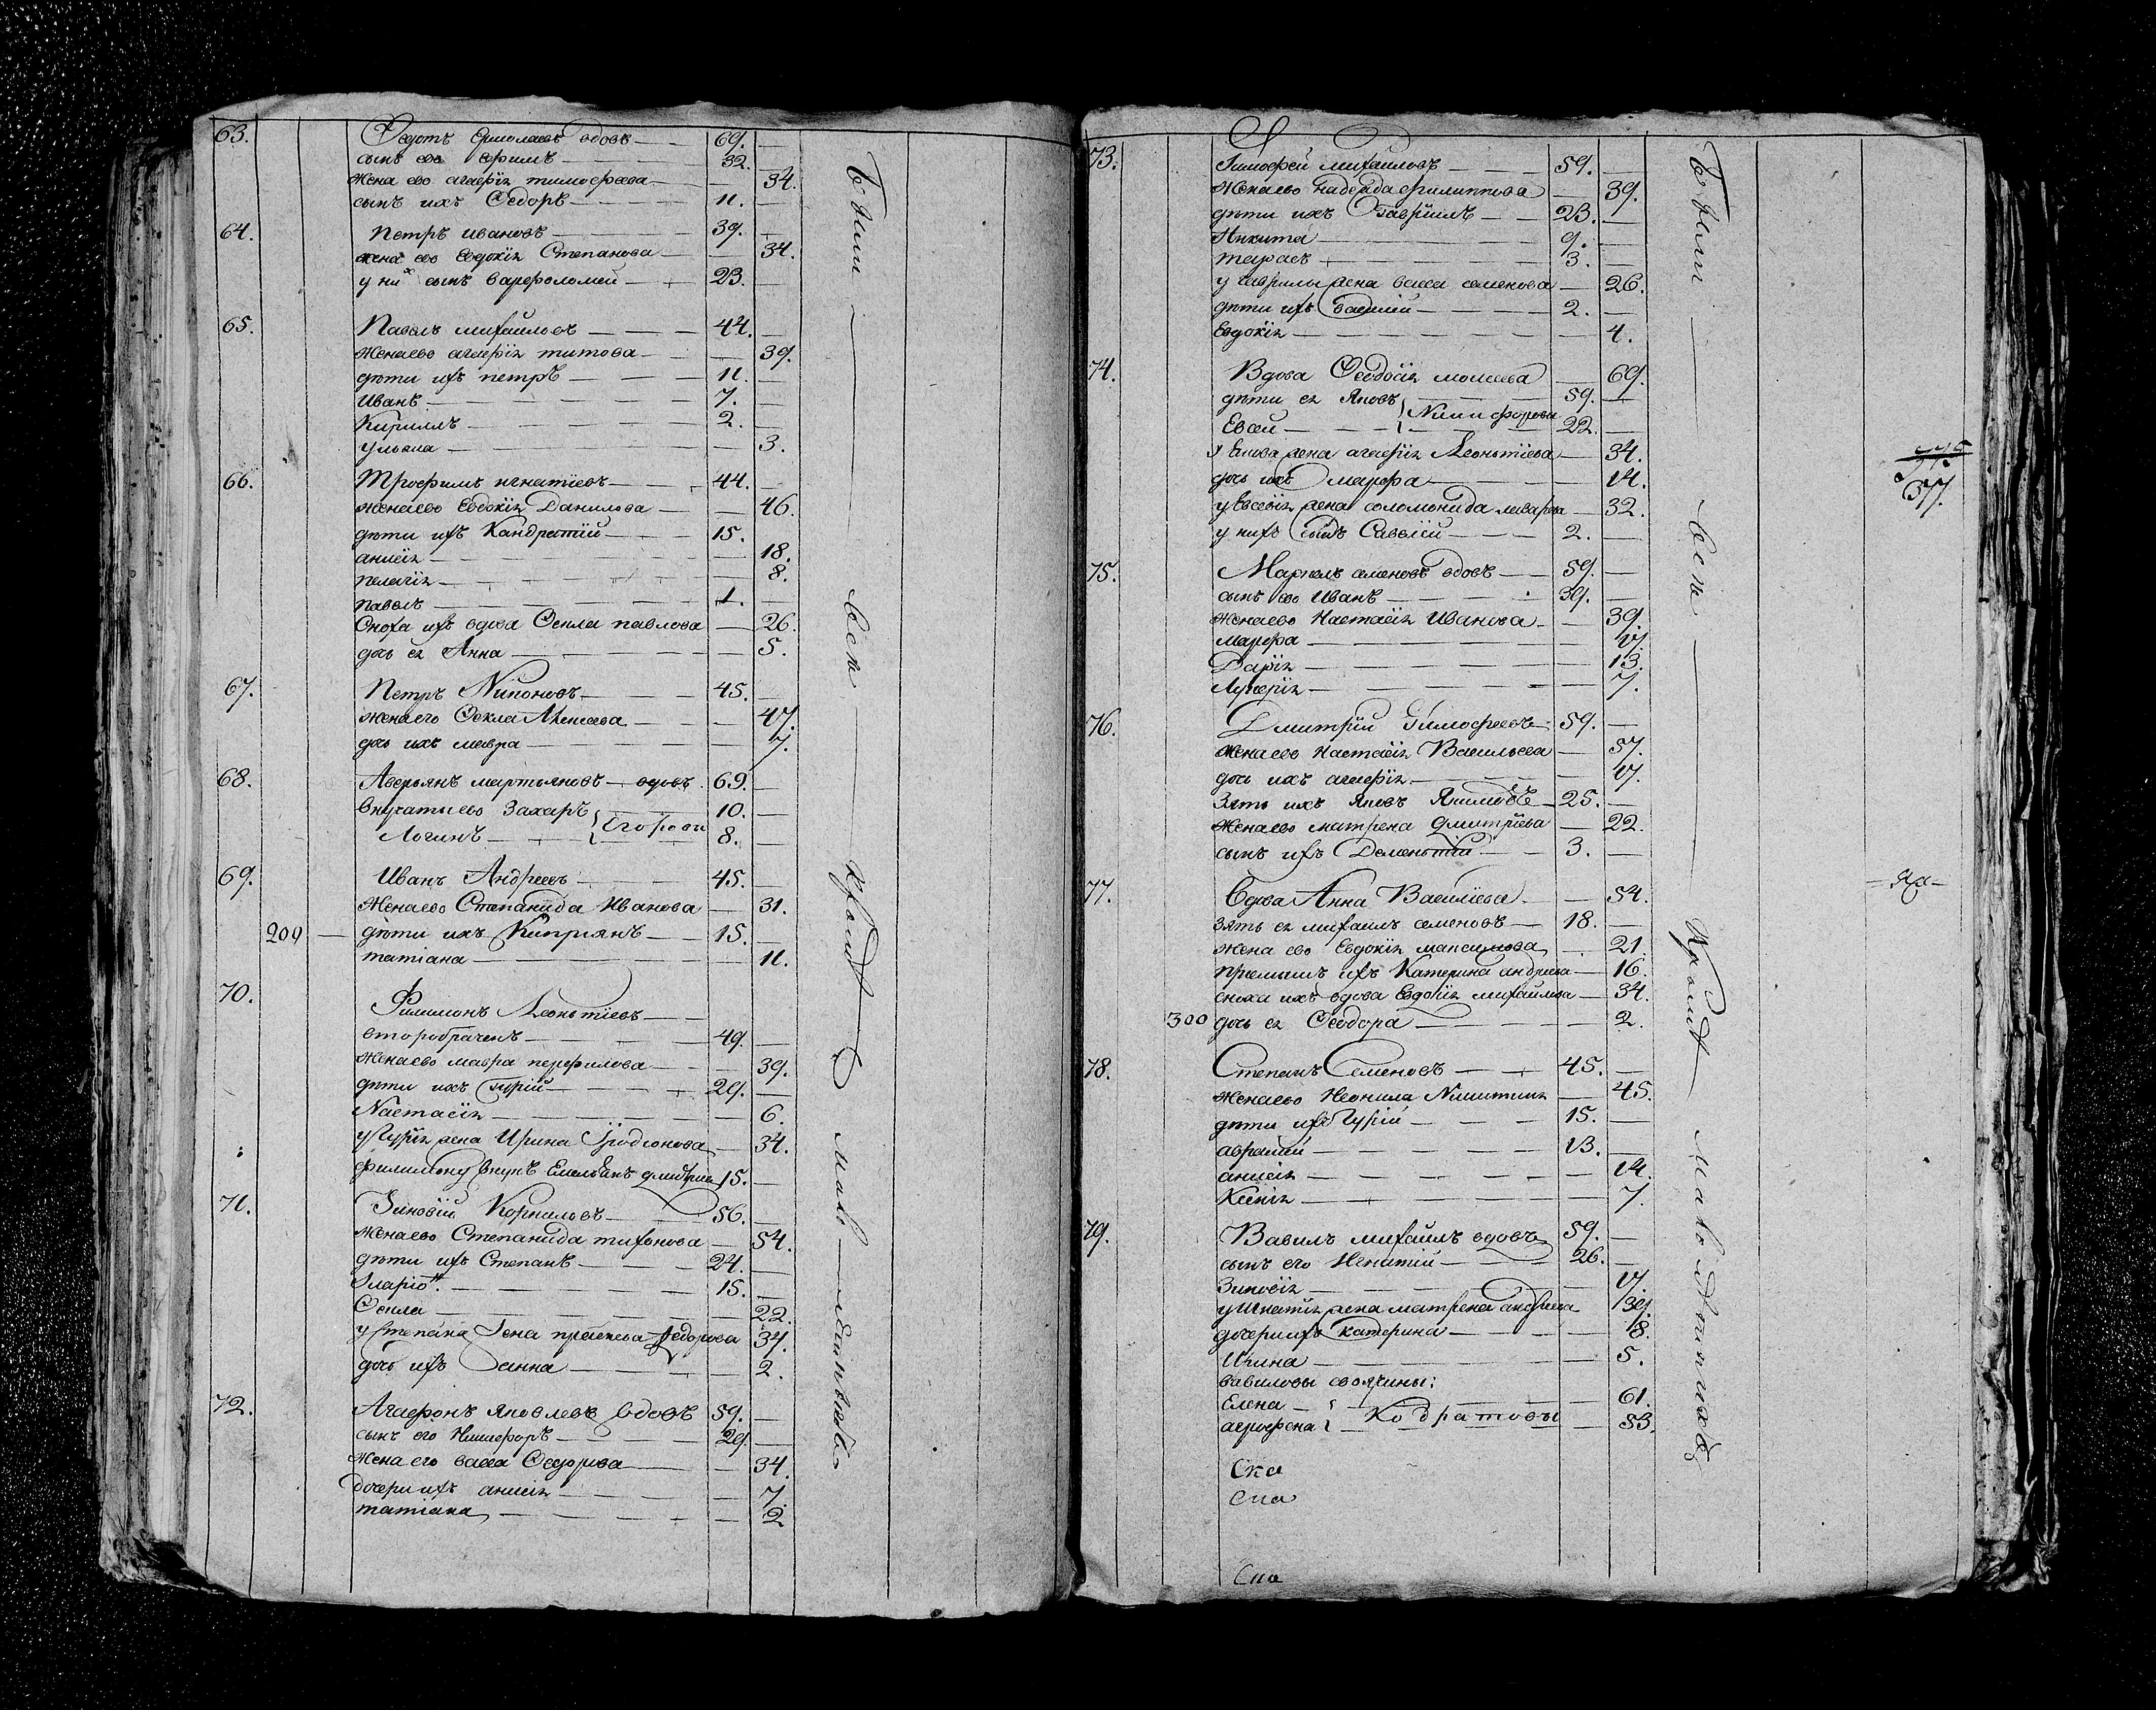 63. Федотъ Ермолаевъ вдовъ — 69.
сынъ ево Ефимъ — 32.
жена ево агафiя тимофеева — 34.
сынъ ихъ Федоръ — 11.
64. Петръ ивановъ — 39.
жена ево Евдокiя Степанова — 34.
у них сынъ варфоломей — 23.
65. Павелъ михайловъ — 44.
жена ево агафiя титова — 39.
дѣти ихъ петръ — 11.
Иванъ — 7.
Кирилъ — 2.
ульяна — 3.
66. Трофимъ игнатiевъ — 44.
жена ево Евдокiя Данилова — 46.
дѣти ихъ Кандратiй — 15.
анисiя — 18.
пелагiя — 8.
павелъ — 1.
Сноха ихъ вдова Фекла павлова — 26.
дочь ея Анна — 5.
67. Петръ Никоновъ — 45.
жена его Фекла Алексеева — 47.
дочь ихъ мавра — 7.
68. Аверьянъ мартьяновъ — вдовъ 69.
внучаты ево Захаръ — 10.
Логинъ — Егоровы 8.
69. Иванъ Андреевъ — 45.
жена ево Степанида Иванова — 31.
200 — дѣти ихъ Киприянъ — 15.
татiана — 11.
70. Филимонъ Леонтiевъ —
второбраченъ — 49.
жена ево мавра перфилова — 39.
дѣти ихъ Гурiй — 29.
Настасiя — 6.
у Гурiя жена Ирина Родiонова — 34.
филимону внукъ Емельянъ 15.
71. Зиновiй Корниловъ — 56.
жена ево Степанида тихонова — 54.
дѣти ихъ Степанъ — 24.
Iларiо н. — 15.
Фекла — 22.
у Степана жена прасковья федорова 34.
дочь ихъ анна — 2.
72. Агафонъ яковлевъ вдовъ 59.
сынъ его Никифоръ — 29.
жена его васса Федорова — 34.
дочери ихъ анисiя — 7.
татiана — 2
Были — въ — Крещ
73. Тимофей михаиловъ — 59.
жена ево надежда филиппова — 39.
дѣти ихъ Гаврiилъ — 23.
Никита — 9.
тарасъ — 3.
у гаврилы жена васса семенова — 26.
дѣти ихъ василiй — 2.
Евдокiя — 4.
74. Вдова Феодосiя моисеева — 69.
дѣти ея Яковъ — 59.
Евсей — Никифоровы 22.
у Якова жена агафiя Леонтiева — 34.
дочь ихъ марфа — 14.
у Евсевiя жена соломонида — 32.
у нихъ сынъ Савелiй — 2.
75. Маркелъ семеновъ вдовъ — 59.
сынъ ево Иванъ — 39.
жена ево Настасiя Иванова — 39.
марфа — 17.
Дарiя — 13.
Лукерiя — 7.
76. Дмитрiй Тимофеевъ — 59.
жена ево настасiя Васильева — 57.
дочь ихъ агафiя — 17.
Зять ихъ Яковъ Якимовъ — 25.
жена ево матрена дмитрiева — 22.
сынъ ихъ Дементiй — 3.
77. Вдова Анна Василiева — 54.
зять ея михаилъ семеновъ — 18.
жена ево Евдокiя максимова — 21.
ихъ Катерина андреева — 16.
сноха ихъ вдова Евдокiя михайлова — 34.
300 дочь ея Феодора — 2.
78. Степанъ Семеновъ — 45.
жена ево Неонила Никитина — 45.
дѣти ихъ Гурiй — 15.
аврамiй — 13.
анисiя — 14.
Ксенiя — 7.
79. Вавилъ михайлъ вдовъ 59.
сынъ его Игнатiй — 26.
Зиновiя — 17.
у Игнатiя жена матрена андреева 39.
дочери ихъ катерина — 8.
Ирина — 5.
вавиловы своячины:
Елена — 61.
агрофена — Кодратовы — 53.
Ска
Ска
Ска
Были — въ — Крещ
377.